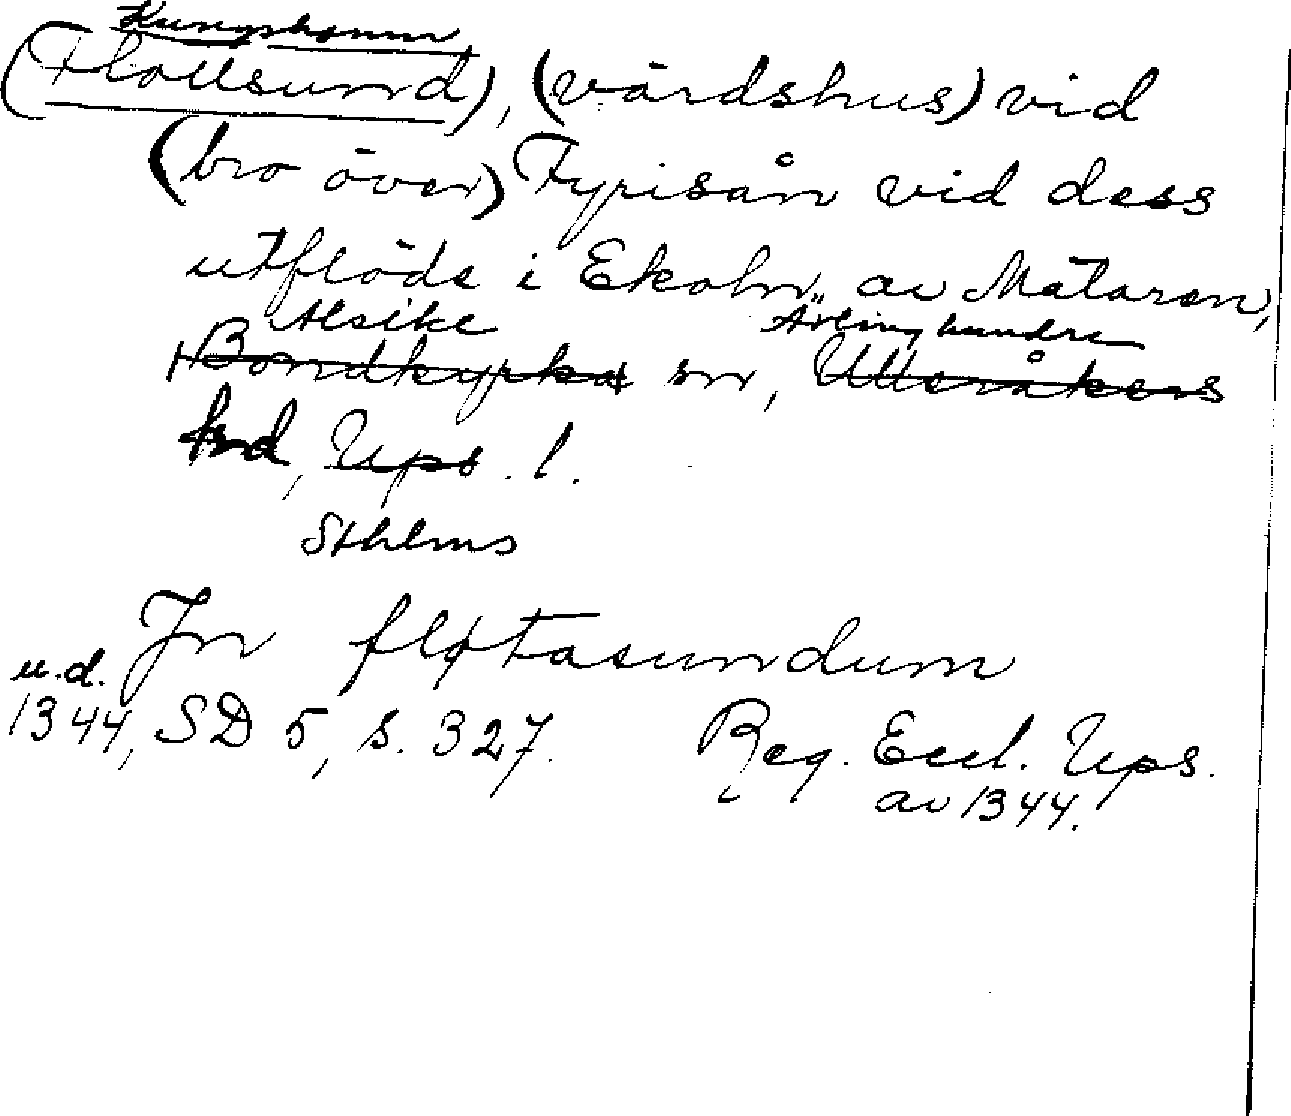 Kungshamn
(Flottsund), (värdshus) vid
(bro över) Fyrisån vid dess
utflöde i Ekoln av Mälaren,
Alsike Ärlinghundra
Bondkyrka sn, Ulleråkers
hd, Ups. l.
Sthlms
In fløtasundum
u.d.
1344, SD 5, s. 327. Reg. Eccl. Ups.
av 1344.